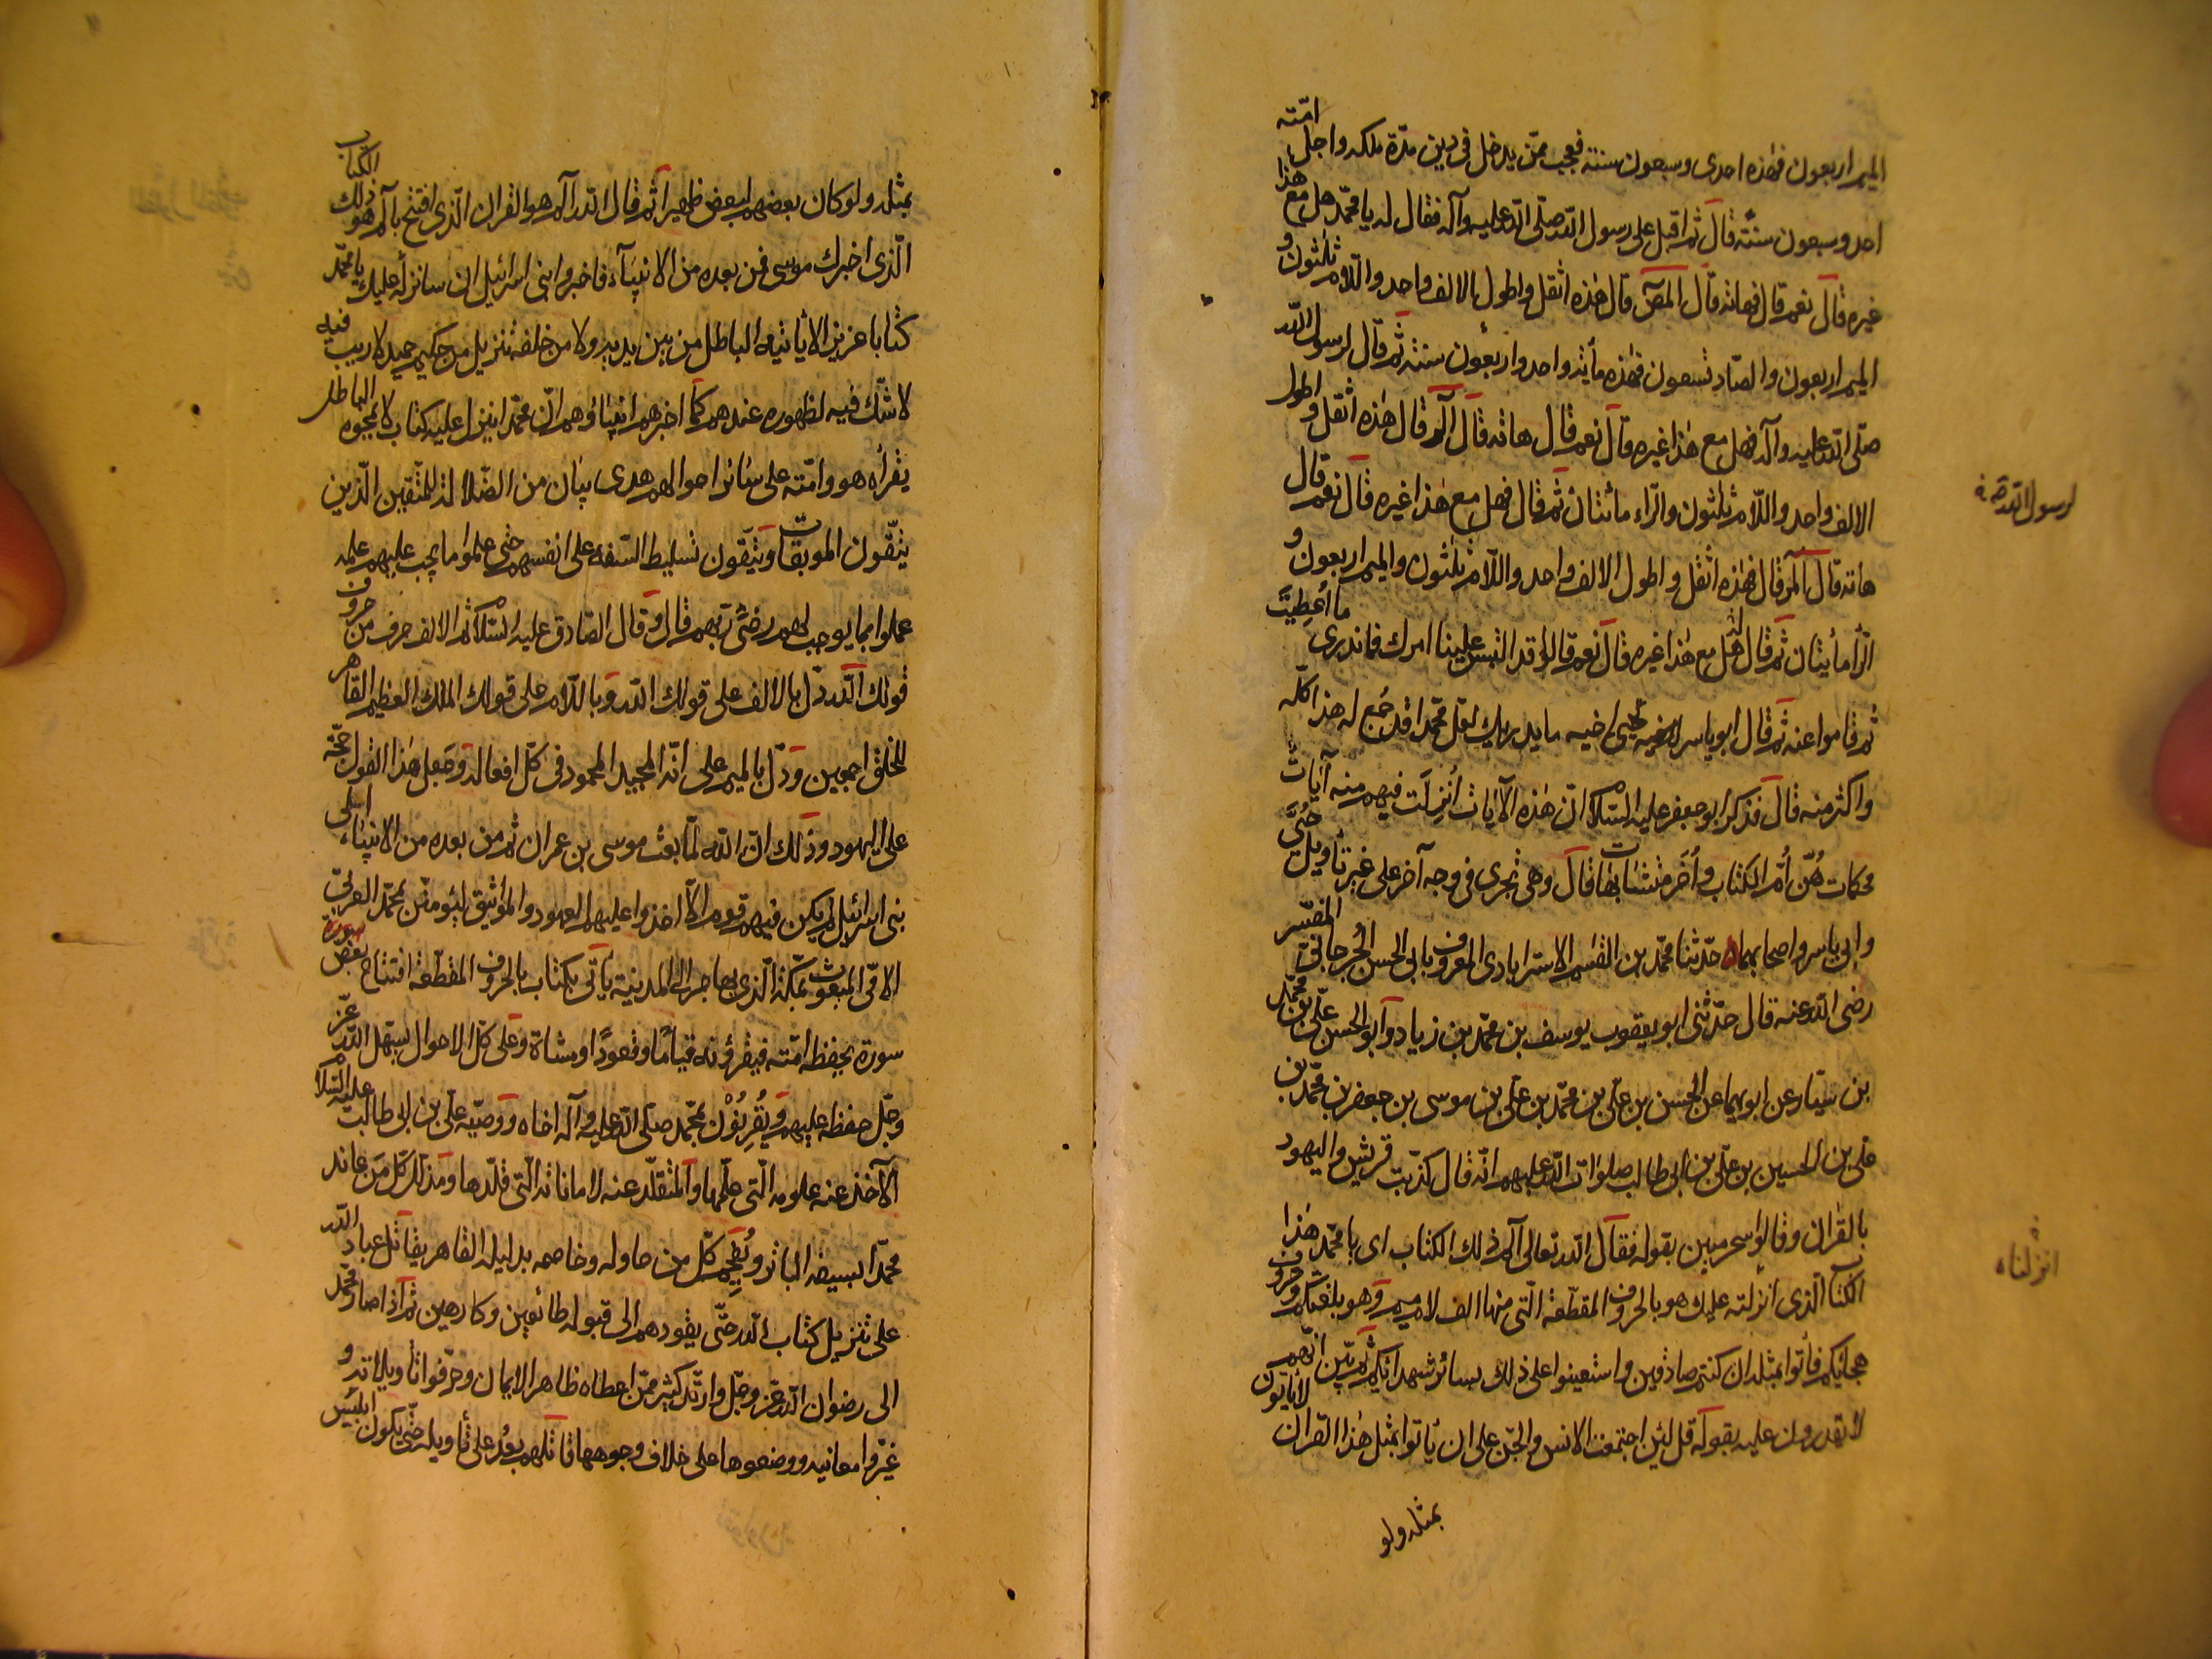 الميم اربعون فهذه احدى وسبعون سنته فعجب ممّن يدخل فى دين مدّة ملكه واجل امّته
احد وسبعون سنته قال ثم اقبل على رسول الله صلّى الله عليه وآله فقال له يا محمّد هل مع هذا
غيره قال نعم قال فهاته قال المص قال هذه اثقل واطول الالف واحد واللام ثلثون و
الميم اربعون والصاد تسعون فهذه مأية واحد واربعون سنته ثم قال لرسول الله
صلّى الله عليه وآله فهل مع هذا غيره قال نعم قال هاته قال الر قال هذه اثقل و اطول
الالف واحد واللّام ثلثون والرّاء مائتان ثم قال فهل مع هذا غيره قال نعم قال
هاته قال المر قال هذه اثقل واطول الالف واحد واللّام ثلثون والميم اربعون و
الرّا مأيتان ثم قال له هل مع هذا غيره قال نعم قالوا قد التبس علينا امرك فما ندرى ما اُعطيتَ
ثم قاموا عنه ثم قال ابو ياسر لحيى اخيه ما يدريك لعل محمّدا قد جُمع له هذا كلّه
واكثر منه قال فذكر ابو جعفر عليه السّلام انّ هذه الآيات اُنزِلَت فيهم منه آيات
محكمات هُنّ اُمّ الكتاب واُخَر متشابهات قال وهى تجرى فى وجه آخر على غير تأويل حُيَىّ
وابى ياسر واصحابهما ه حدّثنا محمّد بن القسم الاسترابادى المعروف بابى الحسن الجُرجانىّ المفسّر
رضى الله عنه قال حدّثنى ابو يعقوب يوسف بن محمّد بن زياد وابو الحسن علىّ بن محمّد
بن سيّار عن ابويهما عن الحسن بن علىّ بن محمّد بن علىّ بن موسى بن جعفر بن محمّد بن
على بن الحسين بن علىّ بن ابى طالب صلوات الله عليهم انّه قال كذّبت قريش واليهود
بالقرآن وقالوا سحر مبين بقوله فقال الله تعالى الم ذلك الكتاب اى يا محمّد هذا
الكتاب الّذى انزلته عليك هو بالحروف المقطّعة الّتى منها الف لام ميم وهو بلغتكم وحروف
هجائكم فأتوا بمثله ان كنتم صادقين واستعينوا على ذلك بسائر شهدائكم ثم بيّن انّهم
لا يقدرون عليه بقوله قل لئن اجتمعت الانس والجنّ على ان يأتوا بمثل هذا القرآن لا يأتون
بمثله ولو
لرسول الله ص
انزلناه
بمثله ولو كان بعضهم لبعض ظهيراً ثم قال الله الم هو القرآن الّذى افتتح بالم هو ذلك الكتاب
الّذى اخبرك موسى فمن بعده من الانبياء فاخبروا بنى اسرائيل ان سانزله عليك يا محمّد
كتابا عزيزا لا ياتيه الباطل من بين يديه ولا من خلفه تنزيل من حكيم حميد لا ريب فيه
لا شكّ فيه لظهوره عندهم كما اخبرهم انبياؤهم انّ محمّدا ينزل عليه كتاب لا يمحوه الباطل
يقرأه هو وامّته على سائر احوالهم هدى بيان من الضّلالة للمتّقين الّذين
يتّقون الموبقات ويتّقون تسليط السّفه على انفسهم حتى علموا ما يجب عليهم علمه
عملوا بما يوجب لهم رضى ربّهم قال وقال الصّادق عليه السّلام ثم الالف حرف من حروف
قولك الله دلّ بالالف على قولك الله وباللّام على قولك الملك العظيم القاهر
للخلق اجمعين ودلّ بالميم على انّه المجيد المحمود فى كلّ افعاله وجعل هذا القول حجّة
على اليهود وذلك انّ الله لمّا بعث موسى بن عمران ثم من بعده من الانبياء الى
بنى اسرائيل لم يكن فيهم قوم الّا اخذوا عليهم العهود والمواثيق ليؤمنن بمحمّد العربىّ
الامّى المبعوث بمكّة الّذى يهاجر الى المدينة يأتى بكتاب بالحروف المقطّعة افتتاح بعض سوره
سورة يحفظه امّته فيقرؤنه قياما وقعودا ومشاة وعلى كلّ الاحوال يسهّل الله عزّ
وجلّ حفظه عليهم ويُقرِنُوْن بمحمّد صلّى الله عليه وآله اخاه ووصيّه علىّ بن ابى طالب عليه السّلام
الآخذ عنه علومه الّتى علّمها والمتقلّد عنه لاماناته الّتى قلّدها ومذلّل كلّ من عاند
محمّدا بسيفه الباتر ويُفحِم كلّ من حاوله وخاصمه بدليله القاهر يقاتل عباد الله
على تنزيل كتاب الله حتّى يقودهم الى قبوله طائعين وكارهين ثم اذا صار محمّد
الى رضوان الله عزّ وجلّ وارتدّ كثير ممّن اعطاه ظاهر الايمان وحرّفوا تأويلاته و
غيّروا معانيه ووضعوها على خلاف وجوهها قاتلهم بعدُ على تأويله حتّى يكون ابليس